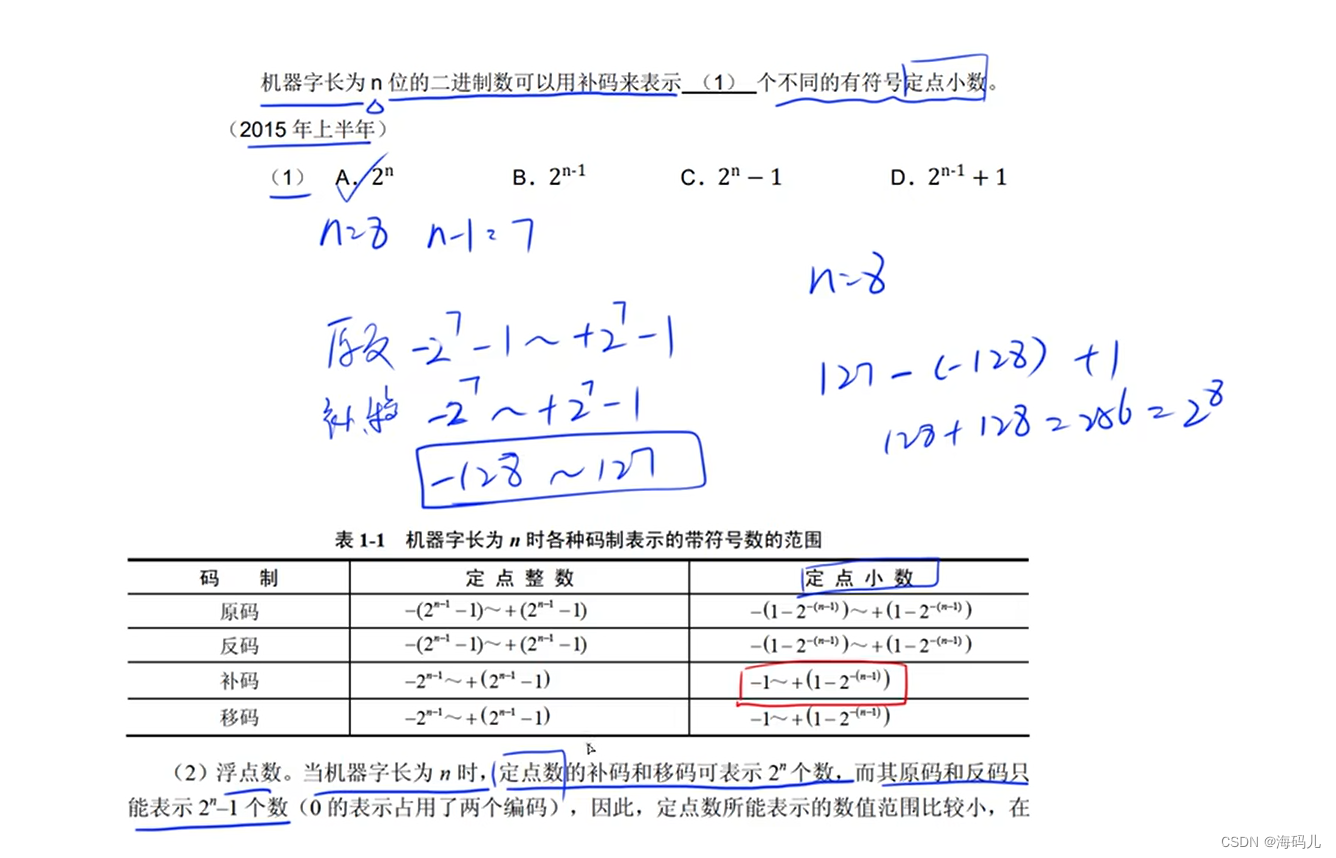 机器字长为 n 位的二进制数可以用补码来表示 （1） 个不同的有符号定点小数。
（2015 年上半年）
（1） A．2ⁿ B．2ⁿ⁻¹ C．2ⁿ − 1 D．2ⁿ⁻¹ + 1
n=8 n-1=7
n=8
原反 -2⁷-1～+2⁷-1
127-(-128)+1
补移 -2⁷～+2⁷-1
128+128=256=2⁸
-128～127
表 1-1 机器字长为 n 时各种码制表示的带符号数的范围
码 制 定 点 整 数 定 点 小 数
原码 −(2ⁿ⁻¹ −1)～+(2ⁿ⁻¹ −1) −(1−2⁻⁽ⁿ⁻¹⁾)～+(1−2⁻⁽ⁿ⁻¹⁾)
反码 −(2ⁿ⁻¹ −1)～+(2ⁿ⁻¹ −1) −(1−2⁻⁽ⁿ⁻¹⁾)～+(1−2⁻⁽ⁿ⁻¹⁾)
补码 −2ⁿ⁻¹～+(2ⁿ⁻¹ −1) −1～+(1−2⁻⁽ⁿ⁻¹⁾)
移码 −2ⁿ⁻¹～+(2ⁿ⁻¹ −1) −1～+(1−2⁻⁽ⁿ⁻¹⁾)
（2）浮点数。当机器字长为 n 时，定点数的补码和移码可表示 2ⁿ 个数，而其原码和反码只
能表示 2ⁿ−1 个数（0 的表示占用了两个编码），因此，定点数所能表示的数值范围比较小，在
CSDN @海码儿